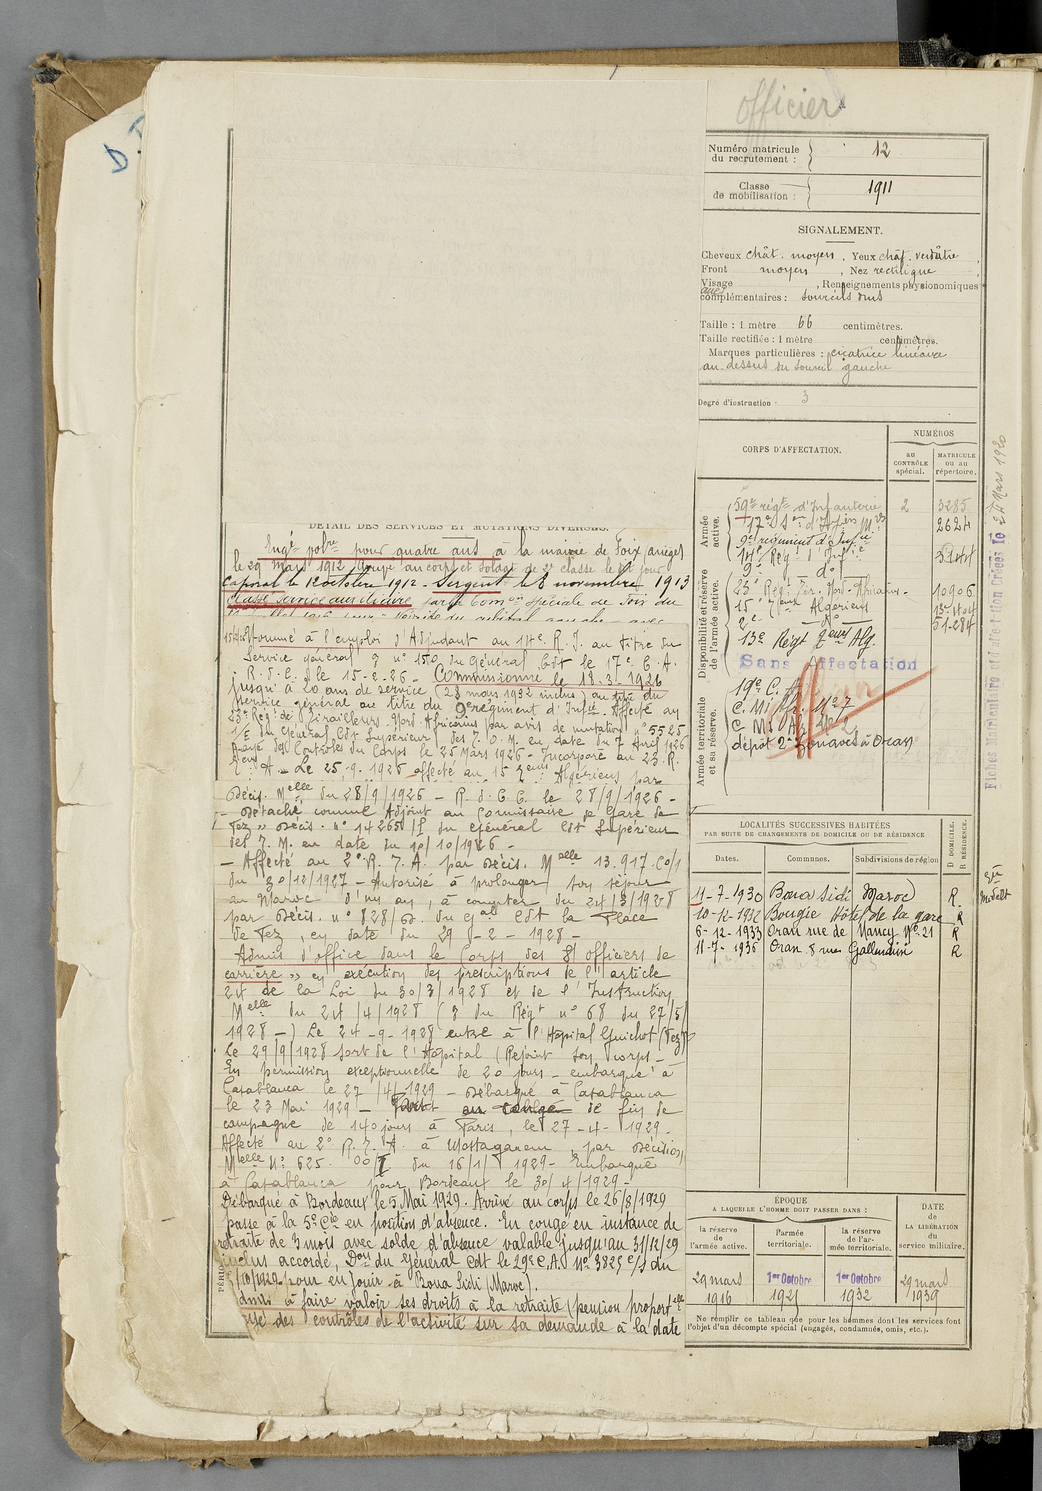 officier
Numéro matricule
du recrutement : 12
Classe
de mobilisation : 1911
SIGNALEMENT.
Cheveux chât. moyen, Yeux chât. verdâtre
Front moyen, Nez rectiligne
Visage , Renseignements physionomiques
complémentaires : sourcils drus
Taille : 1 mètre 66 centimètres.
Taille rectifiée : 1 mètre centimètres.
Marques particulières : cicatrice linéaire
au dessus du sourcil gauche
Degré d'instruction : 3
CORPS D'AFFECTATION.
NUMÉROS
AU CONTRÔLE spécial.
MATRICULE OU AU répertoire.
Armée active.
59e régt d'Infanterie 2 3285
17e 2624
9e régiment d'Infie
14e Rég. d'Infie 3144
9e do
Disponibilité et réserve de l'armée active.
23e Rég. Tir. Nord-Africains 10906
15e Algériens
2e
13e Régt Alg.
Sans affectation
Armée territoriale et sa réserve.
19e C.
dépôt 2e Zouaves à Oran
Fiches Matriculaire et d'affection Créées le 24 Mars 1920
DÉTAIL DES SERVICES ET MUTATIONS DIVERSES.
Engé volre pour quatre ans à la mairie de Foix ariège
le 29 mars 1912. au corps et soldat de 2e classe le dit jour
Caporal le 12 octobre 1912 - Sergent le 8 novembre 1913
Classé service auxiliaire par la Comon Spéciale de Foix du
nommé à l'emploi d'Adjudant au 14e R. I. au titre du
Service général nº 150 du Général Cdt le 17e C. A.
R. d. C. le 15-2-26 - Commissionné le 18-3-1926
jusqu'à 20 ans de service (28 mars 1932 inclus) au titre du
service général au titre du 9e régiment d'Infie. Affecté au
23e Rég. de Tirailleurs Nord-Africains par avis de mutation nº 5525
1/E du Général Cdt Supérieur des T. O. M. en date du 7 Avril 1926
Rayé des Contrôles du Corps le 25 Mars 1926 - Incorporé au 23e R.
T. N. A. - Le 25-9-1926 affecté au 15 Algériens par
Décis. Melle du 28/9/1926 - R. d. C. le 28/9/1926 -
- Détaché comme Adjoint au Commissaire de Gare de
Fez » Décis. nº 14265 du Général Cdt Supérieur
des T. M. en date du 10/10/1926 -
- Affecté au 2e R. T. A. par Décis. Melle 13.917
du 30/12/1927 - Autorisé à prolonger son séjour
au Maroc d'un an, à compter du 24/3/1928
par Décis. nº 828/ du Gal Cdt la Place
de Fez, en date du 29-2-1928 -
- Admis d'office dans le Corps des S/ officiers de
carrière » en exécution des prescriptions de l'article
24 de la Loi du 30/3/1928 et de l'Instruction
Melle du 24/4/1928 ( du Régt nº 68 du 27/5/
1928 -) Le 24-9-1928 entre à l'Hôpital Guichot (Fez)
Le 29/9/1928 sort de l'Hôpital (Rejoint son corps -
En permission exceptionnelle de 20 jours - embarqué à
Casablanca le 27/4/1929 - Débarqué à Casablanca
le 23 Mai 1929 - en congé de fin de
campagne de 140 jours à Paris, le 27-4-1929
Affecté au 2e R. T. A. à Mostaganem par décision
Melle Nº 625 du 16/1/1929 - Embarqué
à Casablanca pour Bordeaux le 30/4/1929 -
Débarqué à Bordeaux le 5 Mai 1929. Arrivé au corps le 26/8/1929
passé à la 5e Cie en position d'absence. En congé en instance de
retraite de 3 mois avec solde d'absence valable jusqu'au 31/12/29
inclus accordé, Don du Général Cdt le 29e C.A. Nº 3825 c/s du
pour en jouir à Boua Sidi (Maroc).
admis à faire valoir ses droits à la retraite (pension proportelle
rayé des contrôles de l'activité sur sa demande à la date
LOCALITÉS SUCCESSIVES HABITÉES
PAR SUITE DE CHANGEMENTS DE DOMICILE OU DE RÉSIDENCE
Dates. Communes. Subdivisions de région D DOMICILE. R RÉSIDENCE.
11-7-1930 Boua Sidi Maroc R.
10-12-1932 Bougie Hôtel de la gare R
6-12-1933 Oran rue de Nancy Nº 21 R
11-7-1935 Oran 8 rue Gallendini R
ÉPOQUE
A LAQUELLE L'HOMME DOIT PASSER DANS :
la réserve de l'armée active.
l'armée territoriale.
la réserve de l'armée territoriale.
DATE de LA LIBÉRATION du service militaire.
29 mars 1916
1er Octobre 1925
1er Octobre 1932
29 mars 1939
Ne remplir ce tableau que pour les hommes dont les services font
l'objet d'un décompte spécial (engagés, condamnés, omis, etc.).